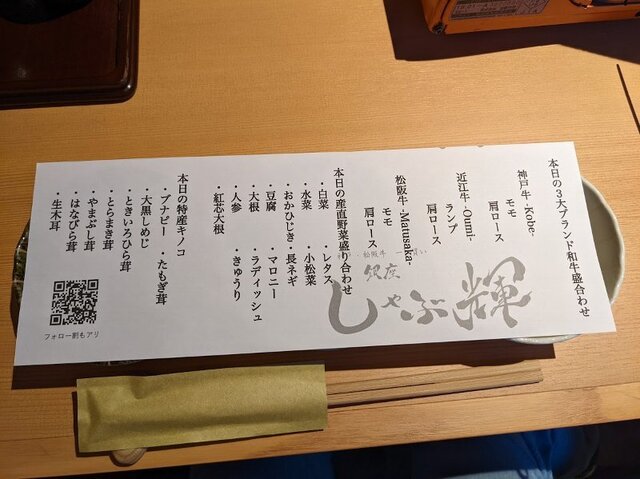 本日の3大ブランド和牛盛合わせ
神戸牛 -Kobe-
モモ
肩ロース
近江牛 -Oumi-
ランプ
肩ロース
松阪牛 -Matusaka-
モモ
肩ロース
本日の産直野菜盛り合わせ
・白菜 ・レタス
・水菜 ・小松菜
・おかひじき ・長ネギ
・豆腐 ・マロニー
・大根 ・ラディッシュ
・人参 ・きゅうり
・紅芯大根
本日の特産キノコ
・ブナピー ・たもぎ茸
・大黒しめじ
・ときいろひら茸
・とらまき茸
・やまぶし茸
・はなびら茸
・生木耳
銀座
しゃぶ輝
フォロー割もアリ